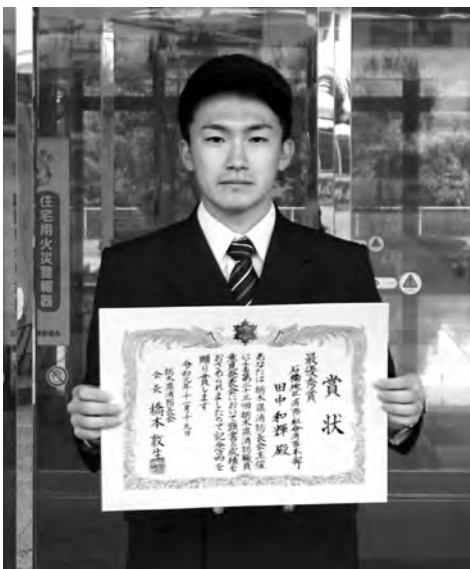 住宅用火災警報器
賞状
最優秀賞
石橋地区消防組合消防本部
田中和輝 殿
あなたは栃木県消防長会主催
による 栃木県消防職員
意見発表会において頭書の成績を
おさめられましたので記念品を
贈り賞します
令和元年十一月十九日
栃木県消防長会
会長 橋本敦生